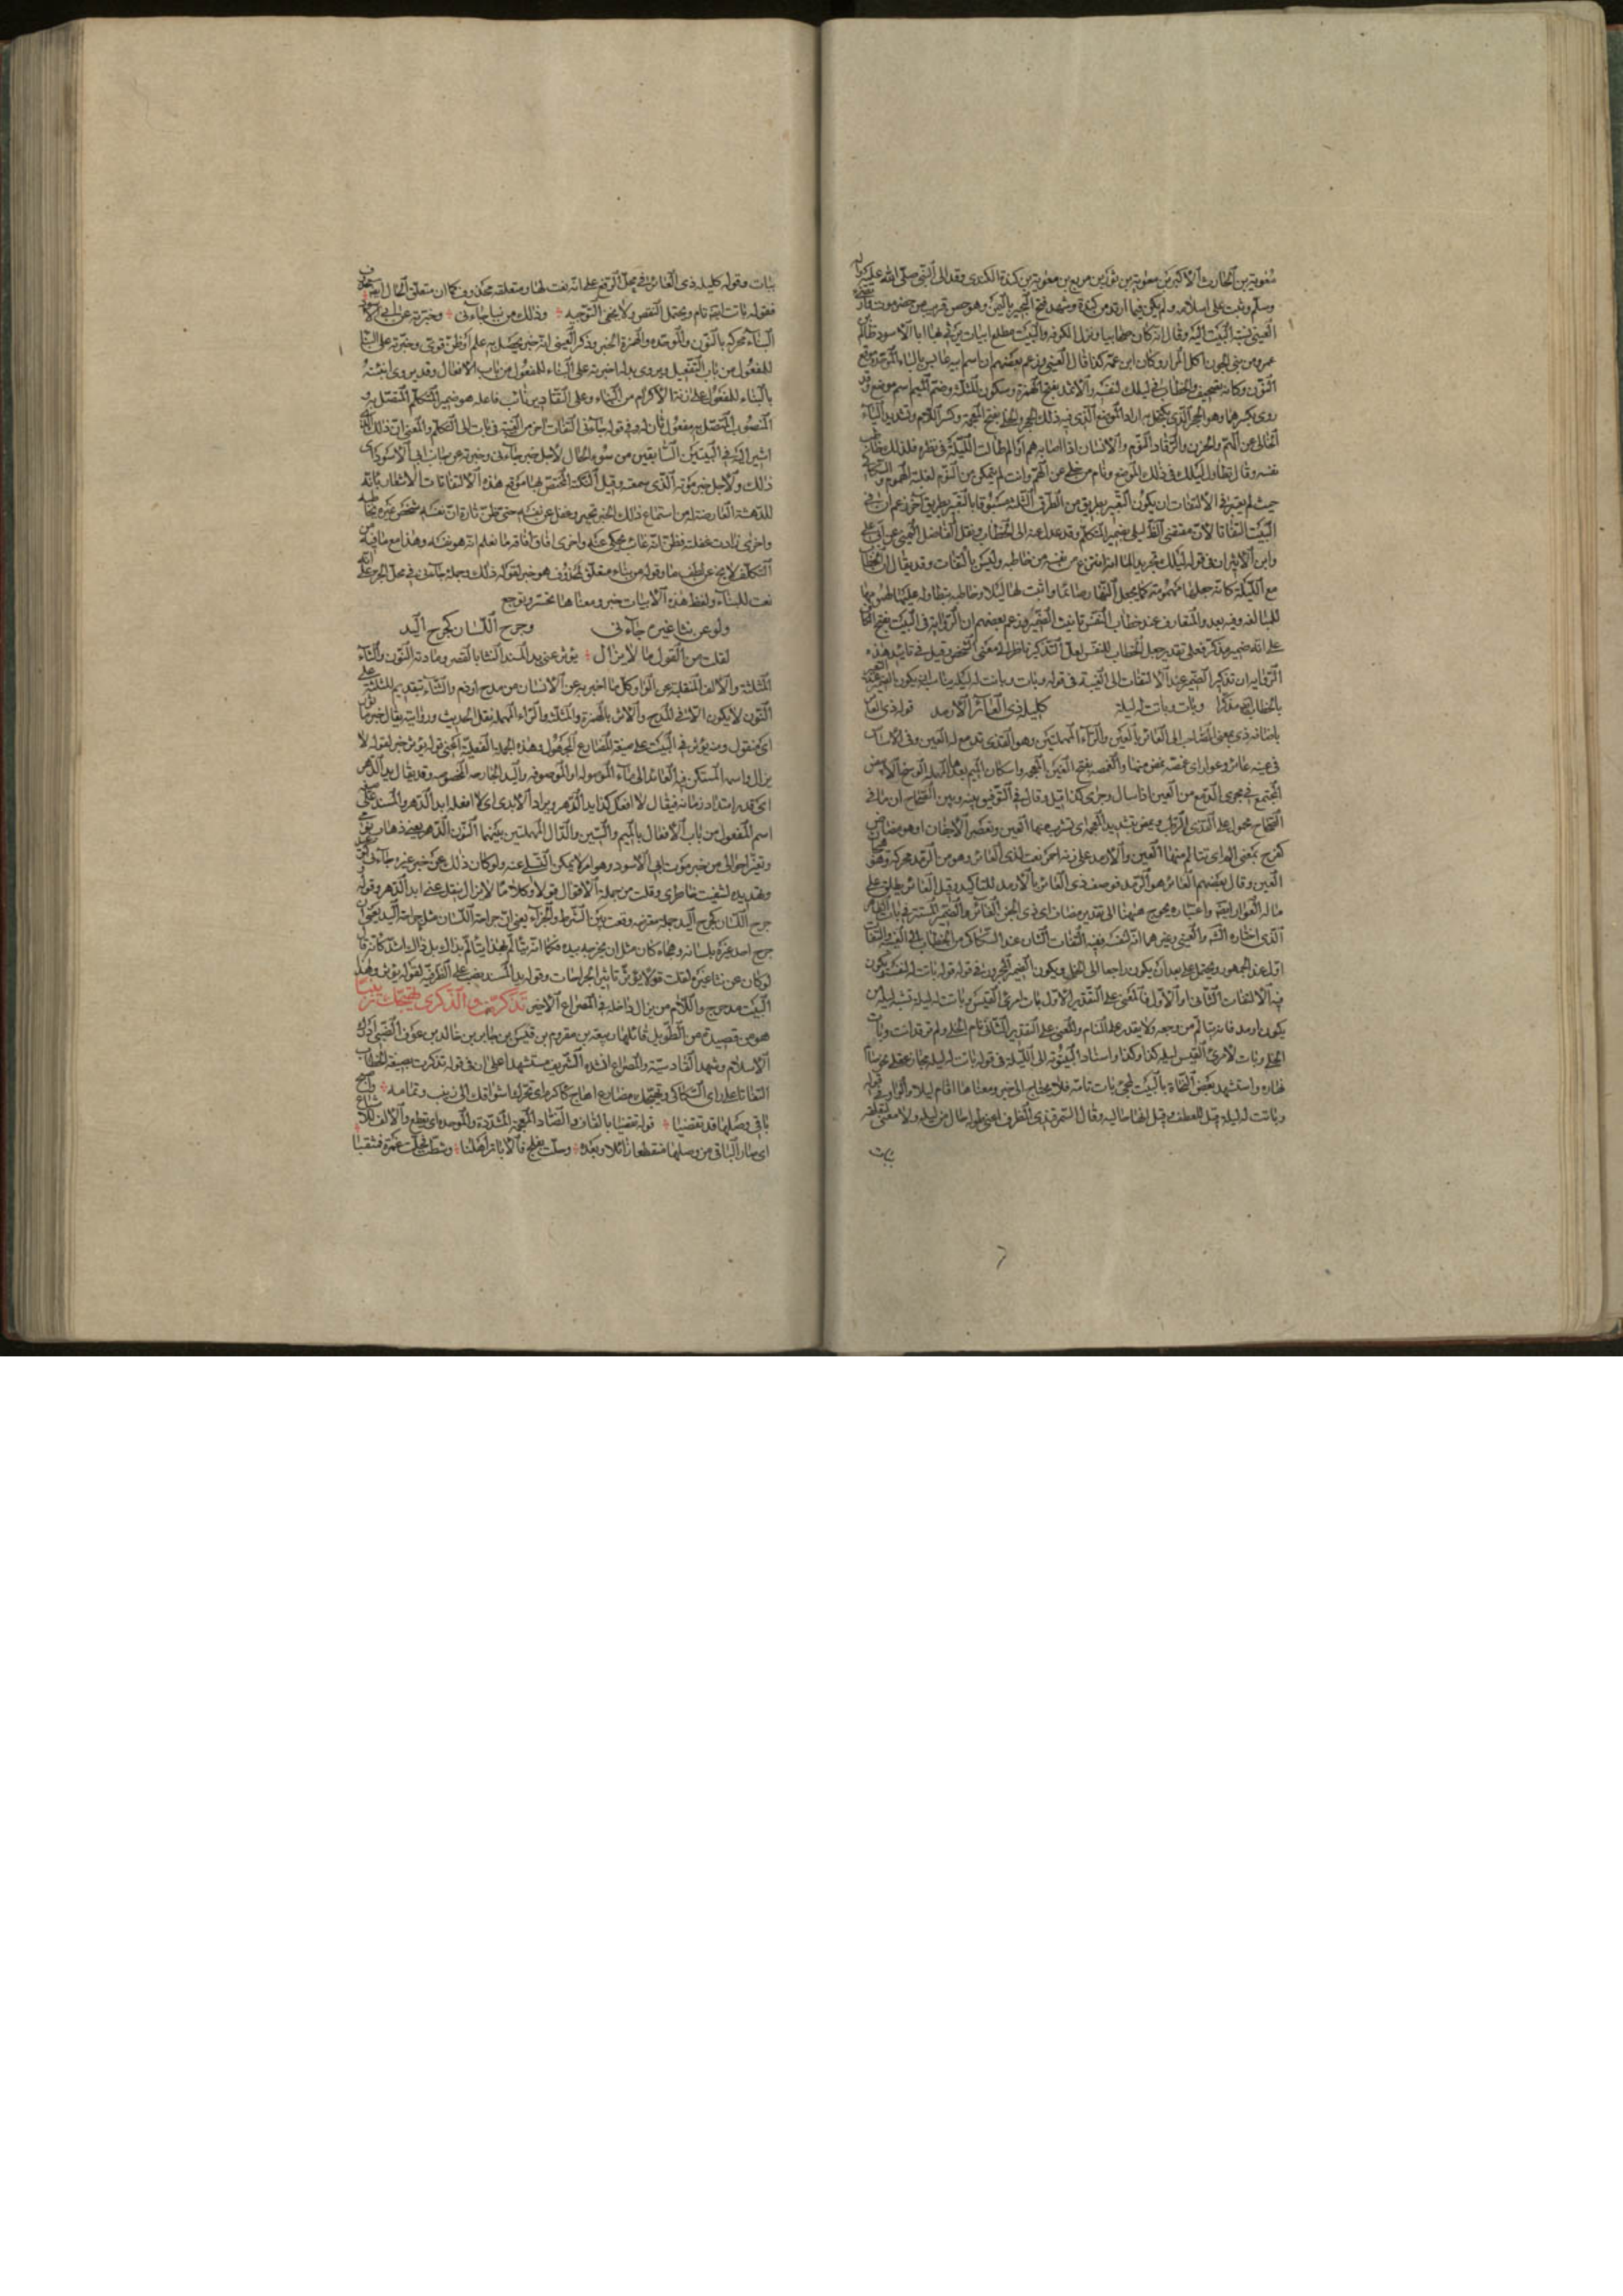 معوية بن الحارث الأكبر بن معوية بن ثور بن مربع بن معوية بن كندة الكندي وفد الى النبي صلى الله عليه
وسلم وثبت على اسلامه ولم يكن فيمن ارتد من كندة وشهد فتح النجير باليمن وهو حصن قريب من حضرموت
العيني نسب البيت اليه وقال انه كان صحابيا ونزل الكوفة والبيت مطلع ابيات يرثي بها ابا الاسود
عمرو من بني الجون آكل المرار وكان ابن عمه كذا قال العيني وزعم بعضهم ان اسم ابيه عابس بالباء الموحدة
النون وكانه تصحيف والخطاب في ليلك لنفسه والاثمد بفتح الهمزة وسكون المثلثة وضم الميم اسم موضع وقد
روي بكسرهما وهو الحجر الذي يكتحل به اراد الموضع الذي فيه ذلك الحجر الخلي بفتح المعجمة وكسر اللام وتشديد الياء
الخالي عن الهم والحزن والرقاد النوم والانسان اذا اصابه هم او الم طالت الليلة في نظره فلذلك خاطب
نفسه وقال تطاول ليلك في ذلك الموضع ونام من خلى عن الهم وانت لم تتمكن من النوم لغلبة الهموم والسكاكي
حيث لم يعتبر في الالتفات ان يكون التعبير بطريق من الطرق الثلثة مسبوقا بالتعبير بطريق آخر زعم ان في
البيت التفاتا لان مقتضى الظ ليلي بضمير المتكلم وقد عدل عنه الى الخطاب ونقل الفاضل اليمني عن ابي علي
وابن الاثير ان في قوله ليلك تجريدا لما انه انتزع من نفسه من خاطبه وليس بالتفات وقد يقال ان الخطاب
مع الليلة كانه جعلها مهمومة كما يجعل النهار صائما واثبت لها ليلا وخاطبه بتطاوله عليها
للمبالغة وفيه بعد والمتعارف عند خطاب النفس تانيث الضمير وزعم بعضهم ان الرواية في البيت بفتح الكاف
على انه ضمير مذكر فعلى تقدير جعل الخطاب للنفس لعل التذكير ناظر الى معنى الشخص وقيل في تاييد هذه
الرواية ان تذكير الضمير عند الالتفات الى الغيبة في قوله وبات وباتت له ليلة يناسب ان يكون
بالخطاب ايضا مذكرا وبات وباتت له ليلة كليلة ذي العائر الارمد قوله ذي العائر
باضافة ذي بمعنى الصاحب الى العائر بالعين والراء المهملتين وهو القذى تدمع له العين وفي الاساس
في عينه عائر وعوار اى غمصة تمض منها والغمصة بفتح الغين المعجمة واسكان الميم
المجتمع في مجرى الدمع من العين اذا سال وجرى كذا قيل وقال في التوفيق بينه وبين الصحاح ان ما في
العين وقال بعضهم العائر هو الرمد فوصف ذي العائر بالارمد للتاكيد وقيل العائر يطلق على
الذي اختاره الشم والعيني وغيرهما انه لنفسه ففيه التفات
فيه الالتفات الثاني او الاول فالمعنى على التقدير الاول بات امرئ القيس وباتت له ليلة تشبه ليلة من
يكون ارمد فانه يتالم من وجعه ولا يقدر على المنام والمعنى على التقدير الثاني نام الخلي ولم ترقد انت وبات
الخلي وبات لامرئ القيس ليلة كذا وكذا واسناد البيتوتة الى الليلة في قوله باتت له ليلة مجاز عقلي
نهاره واستشهد بعض النحاة بالبيت لمجئ بات تامة فلا يحتاج الى خبر ومعناها اقام ليلا والواو في قوله
وباتت له ليلة قيل للعطف وقيل انها حالية وقال السمرقندي الظرف اعني له حال من ليلة
بيات
بيات وقوله كليلة ذي العائر في محل الرفع على انه نعت لها ومتعلقه محذوف كما ان متعلق الحال ايضا محذوف
فقوله باتت ايضا تام ويحتمل النقص ولا يخفى التوجيه وذلك من نبا جاءني وخبرته عن ابي الاسود
النباء محركة بالنون والموحدة والهمزة الخبر وذكر العيني انه خبر يحصل به علم او ظن قوي وخبرته على البناء
للمفعول من باب التفعيل ويروى بدله اخبرته على البناء للمفعول من باب الافعال وقد يروى انبئته
بالبناء للمفعول على زنة الاكرام من النباء وعلى التقادير نائب فاعله هو ضمير المتكلم المتصل به
المنصوب المتصل به مفعول ثان له وفي قوله جاءني التفات آخر من الغيبة في بات الى التكلم والمعنى ان ذلك الذي
اشير اليه في البيتين السابقين من سوء الحال لاجل خبر جاءني وخبرته عن جانب ابي الاسود اى
ذلك ولاجل خبر موته الذي سمعته وقيل النكتة المختص بها موقع هذه الالتفاتات الاشعار بانه
للدهشة العارضة له من استماع ذلك الخبر تحير وغفل عن نفسه حتى ظن تارة ان نفسه شخص غيره
واخرى زادت غفلته فظن انه غائب محكي عنه واخرى افاق افاقة ما فعلم انه هو نفسه وهذا مع ما فيه من
التكلف لا يخ عن لطف ما وقوله من نباء متعلق بمحذوف هو خبر لقوله ذلك وجملة جاءني في محل الجر على انه
نعت للنباء ولفظ هذه الابيات خبر ومعناها تحسر وتوجع
ولو عن نثا غيره جاءني وجرح اللسان كجرح اليد
لقلت من القول ما لا يزال يؤثر عني يد المسند النثا بالقصر ومادته النون والثاء
المثلثة والالف المنقلبة عن الواو كل ما اخبر به عن الانسان من مدح او ذم والثناء بتقديم المثلثة على
النون لا يكون الا في المدح والاثر بالهمزة والمثلث والراء المهملة نقل الحديث وروايته يقال خبر ماثور
اى منقول ومنه يؤثر في البيت على صيغة المضارع المجهول وهذه الجملة الفعلية اعني قوله يؤثر خبر لقوله لا
يزال واسمه المستكن فيه العائد الى ماء الموصولة او الموصوفة واليد الجارحة المخصوصة وقد يقال يد الدهر
اى قدره امتداد زمانه فيقال لا افعل كذا يد الدهر ويراد الابدى اى لا افعله ابد الدهر والمسند على
اسم المفعول من باب الافعال بالميم والسين والدال المهملتين بينهما النون الدهر
وتغير احوالي من خبر موت ابي الاسود وهو امر لا يمكن التسلي عنه ولو كان ذلك عن خبر غيره جاءني
وتهديده لشفيت خاطري وقلت من جملة الاقوال قولا وكلاما لا يزال ينقل عني ابد الدهر وقوله
جرح اللسان كجرح اليد جملة معترضة وقعت بين الشرط والجزاء يعني ان جراحة اللسان مثل جراحة اليد
جرح احد غيره بلسانه وهجاه كان مثل ان يجرحه بيده فكما انه يتالم بهذا يتالم بذاك بل ذاك اشد كانه قال
لو كان عن نثا غيره لقلت قولا يؤثر تاثير الجراحات وقوله يد المسند نصب على الظرفية لقوله يؤثر وهذا
البيت مدرج واللام من يزال داخلة في المصراع الاخير تذكرت والذكرى تهيجك زينبا
هو من قصيدة من الطويل قائلها ربيعة بن مقروم بن قيس بن جابر بن خالد بن عمرو الضبي ادرك
الاسلام وشهد القادسية والمصراع انشده الشريف مستشهدا على ان في قوله تذكرت بصيغة الخطاب
التفاتا على راى السكاكي وتهيجك مضارع اهاج كاكرم اى تحرك واشواقك الى زينب وتمامه واصبح
باقي وصلها قد تقضبا قوله تقضبا بالقاف والضاد المعجمة المشددة والموحدة اى تقطع والالف للاشباع
اى صار الباقي من وصلها منقطعا زائلا وبعده وحلت بفلج فالاباتر اهلنا وشطت فحلت غمرة فمثقبا